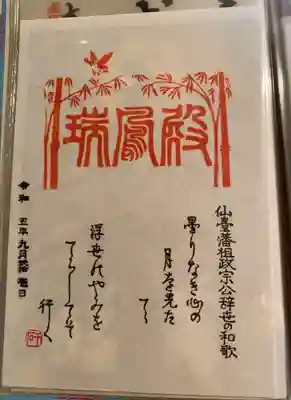 瑞鳳殿
仙臺藩祖政宗公辞世の和歌
曇りなき心の
月を先た
てゝ
浮世のやみを
てらしてそ
行く
令和 五年 九月 壱日